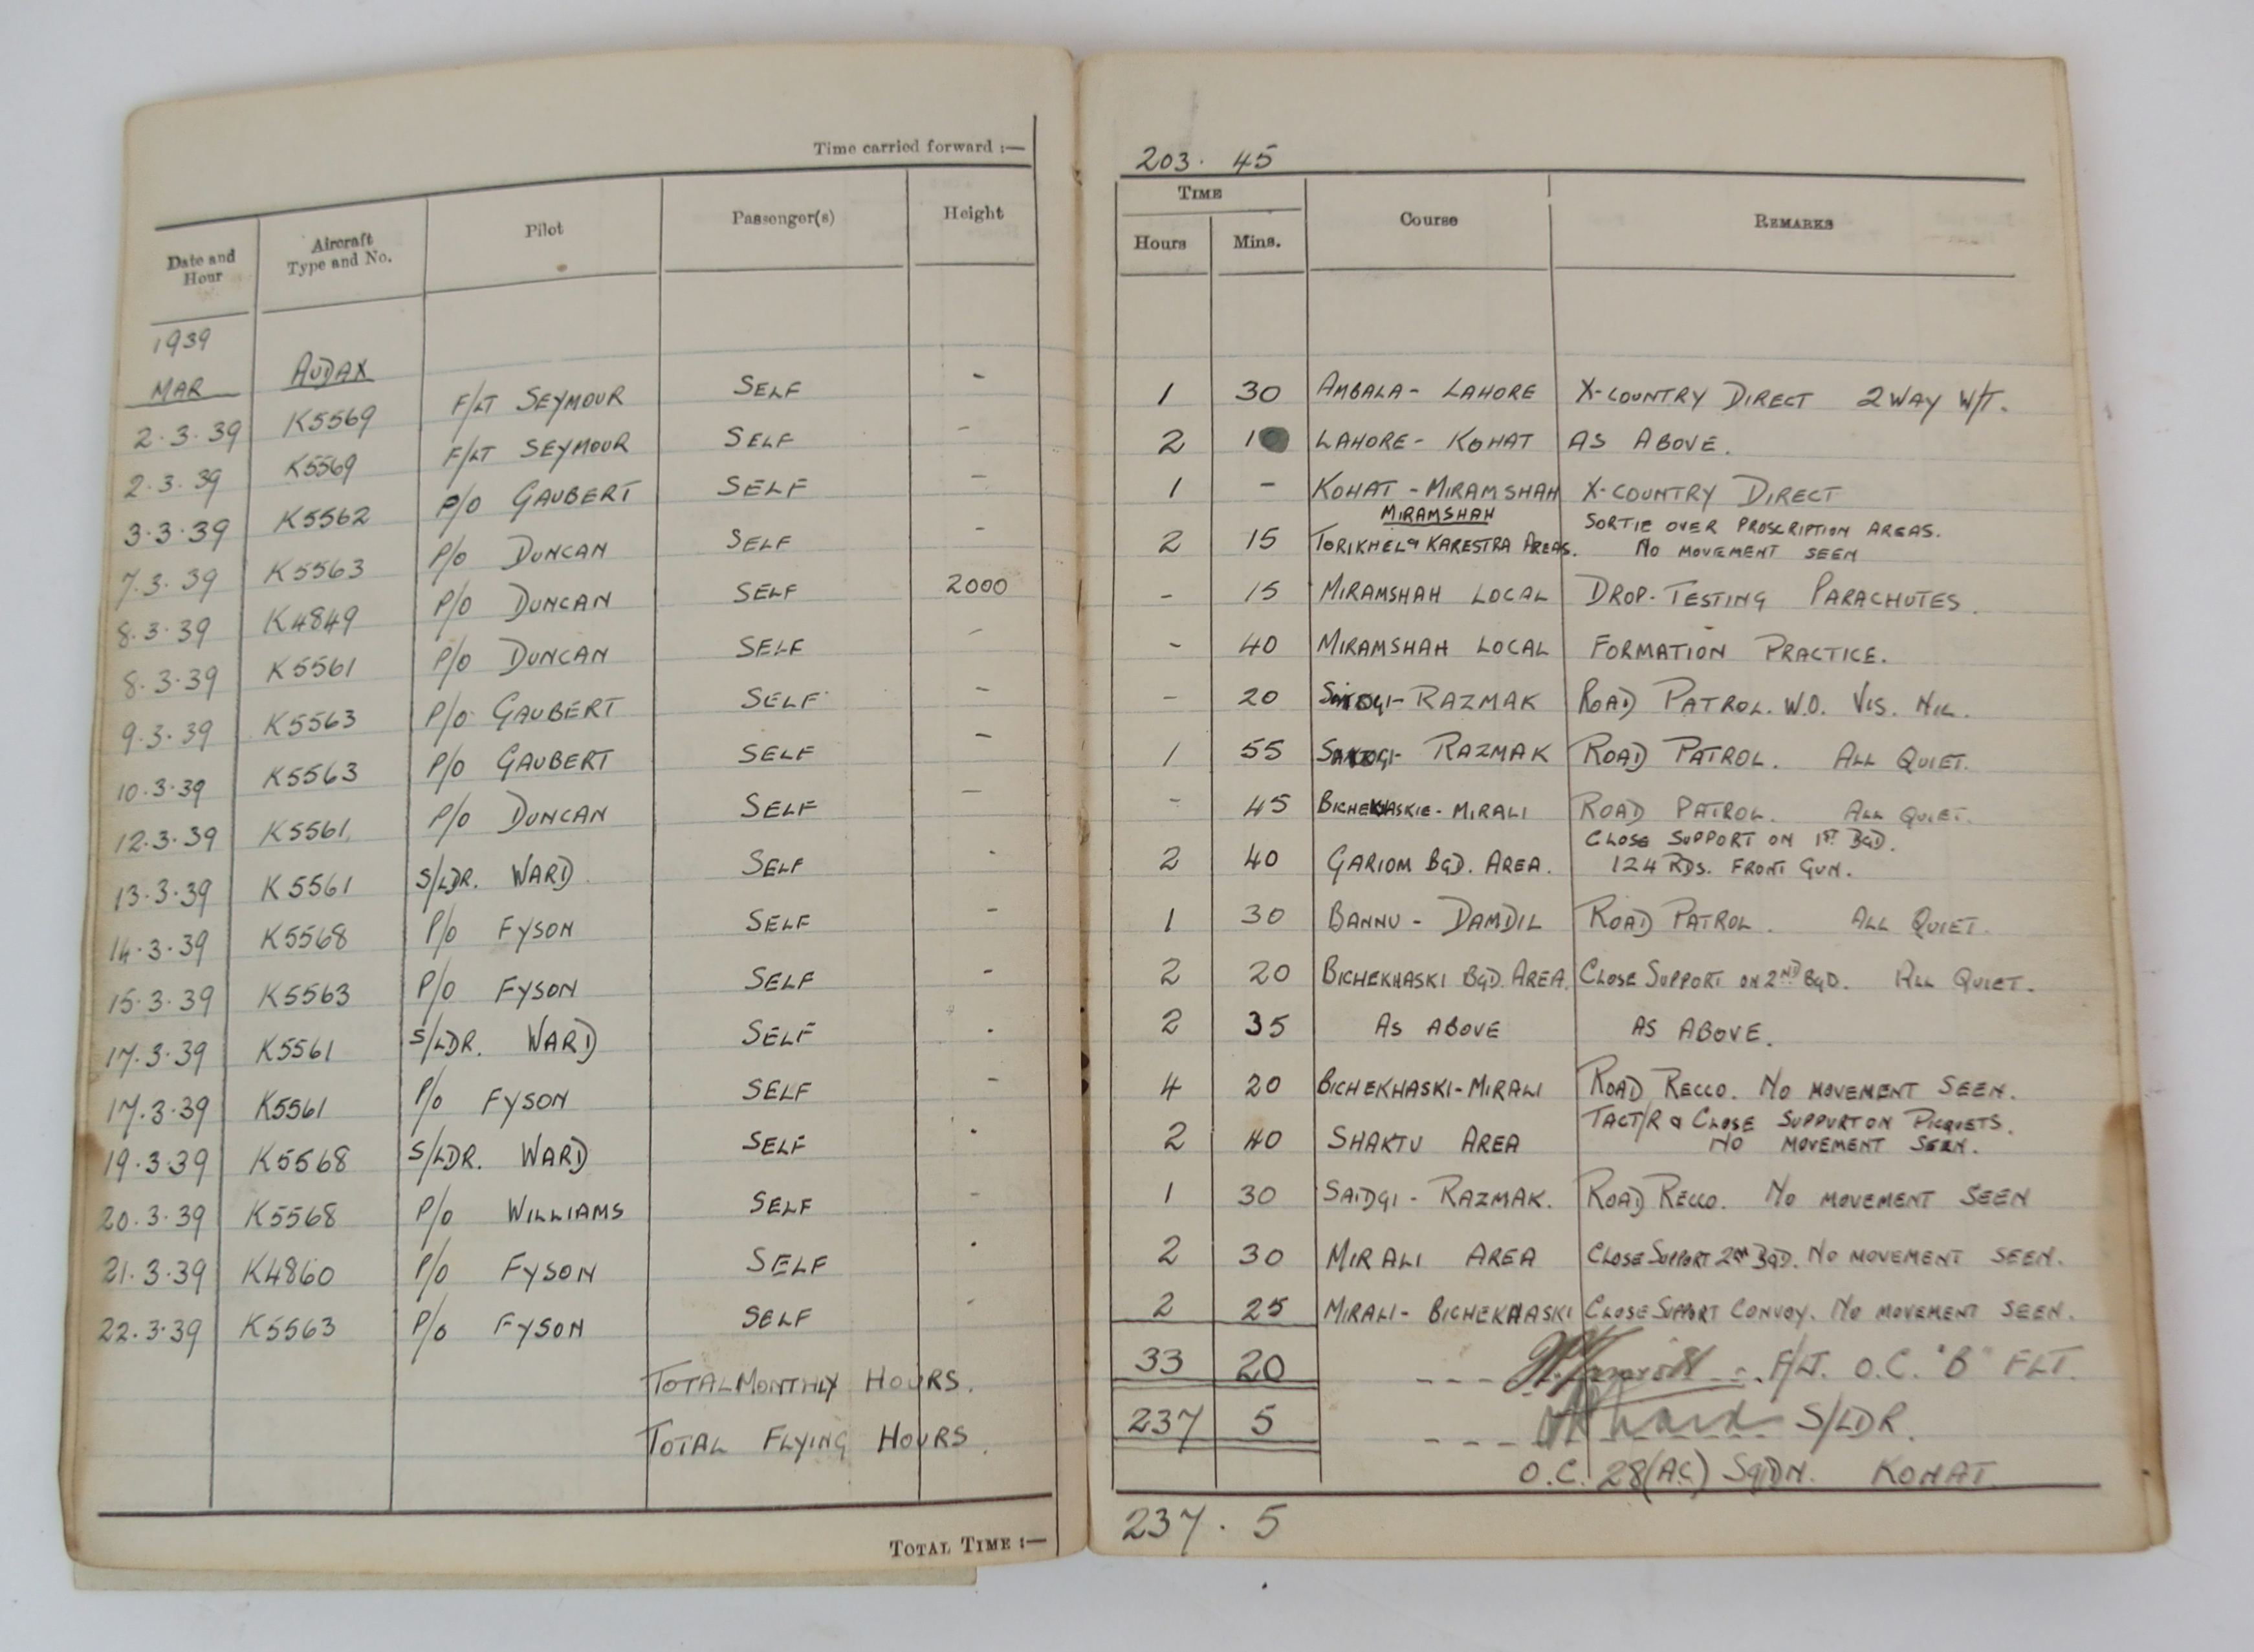 Time carried forward :—
203 . 45
Date and Hour | Aircraft Type and No. | Pilot | Passenger(s) | Height | TIME Hours | Mins. | Course | REMARKS
1939
MAR | AUDAX
2.3.39 | K5569 | F/LT SEYMOUR | SELF | - | 1 | 30 | AMBALA - LAHORE | X-COUNTRY DIRECT 2 WAY W/T.
2.3.39 | K5569 | F/LT SEYMOUR | SELF | - | 2 | 10 | LAHORE - KOHAT | AS ABOVE.
3.3.39 | K5562 | P/O GAUBERT | SELF | - | 1 | - | KOHAT - MIRAMSHAH | X-COUNTRY DIRECT
MIRAMSHAH | SORTIE OVER PROSCRIPTION AREAS.
7.3.39 | K5563 | P/O DUNCAN | SELF | - | 2 | 15 | TORIKHEL & KARESTRA AREAS. | NO MOVEMENT SEEN
8.3.39 | K4849 | P/O DUNCAN | SELF | 2000 | - | 15 | MIRAMSHAH LOCAL | DROP-TESTING PARACHUTES.
8.3.39 | K5561 | P/O DUNCAN | SELF | - | - | 40 | MIRAMSHAH LOCAL | FORMATION PRACTICE.
9.3.39 | K5563 | P/O GAUBERT | SELF | - | - | 20 | RAZMAK | ROAD PATROL. W.O. VIS. NIL.
10.3.39 | K5563 | P/O GAUBERT | SELF | - | 1 | 55 | RAZMAK | ROAD PATROL. ALL QUIET.
12.3.39 | K5561. | P/O DUNCAN | SELF | - | - | 45 | BICHEKHASKIE - MIRALI | ROAD PATROL. ALL QUIET.
CLOSE SUPPORT ON 1ST BGD.
13.3.39 | K5561 | S/LDR. WARD. | SELF | . | 2 | 40 | GARIOM BGD. AREA. | 124 RDS. FRONT GUN.
14.3.39 | K5568 | P/O FYSON | SELF | - | 1 | 30 | BANNU - DAMDIL | ROAD PATROL. ALL QUIET.
15.3.39 | K5563 | P/O FYSON | SELF | - | 2 | 20 | BICHEKHASKI BGD. AREA. | CLOSE SUPPORT ON 2ND BGD. ALL QUIET.
17.3.39 | K5561 | S/LDR. WARD | SELF | . | 2 | 35 | AS ABOVE | AS ABOVE.
17.3.39 | K5561 | P/O FYSON | SELF | - | 4 | 20 | BICHEKHASKI - MIRALI | ROAD RECCO. NO MOVEMENT SEEN.
TACT/R & CLOSE SUPPORT ON PICQUETS.
19.3.39 | K5568 | S/LDR. WARD | SELF | . | 2 | 40 | SHAKTU AREA | NO MOVEMENT SEEN.
20.3.39 | K5568 | P/O WILLIAMS | SELF | - | 1 | 30 | SAIDGI - RAZMAK. | ROAD RECCO. NO MOVEMENT SEEN
21.3.39 | K4860 | P/O FYSON | SELF | . | 2 | 30 | MIRALI AREA | CLOSE SUPPORT 2ND BGD. NO MOVEMENT SEEN.
22.3.39 | K5563 | P/O FYSON | SELF | - | 2 | 25 | MIRALI - BICHEKHASKI | CLOSE SUPPORT CONVOY. NO MOVEMENT SEEN.
TOTAL MONTHLY HOURS. | 33 | 20 | F/LT. O.C. "B" FLT.
TOTAL FLYING HOURS. | 237 | 5 | Ward S/LDR.
O.C. 28(A.C.) SQDN. KOHAT.
TOTAL TIME :— 237 . 5